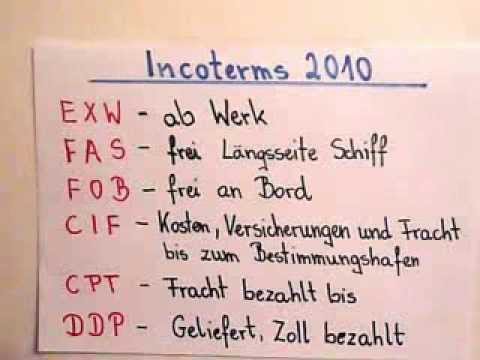 Incoterms 2010
EXW - ab Werk
FAS - frei Längsseite Schiff
FOB - frei an Bord
CIF - Kosten, Versicherungen und Fracht
bis zum Bestimmungshafen
CPT - Fracht bezahlt bis
DDP - Geliefert, Zoll bezahlt